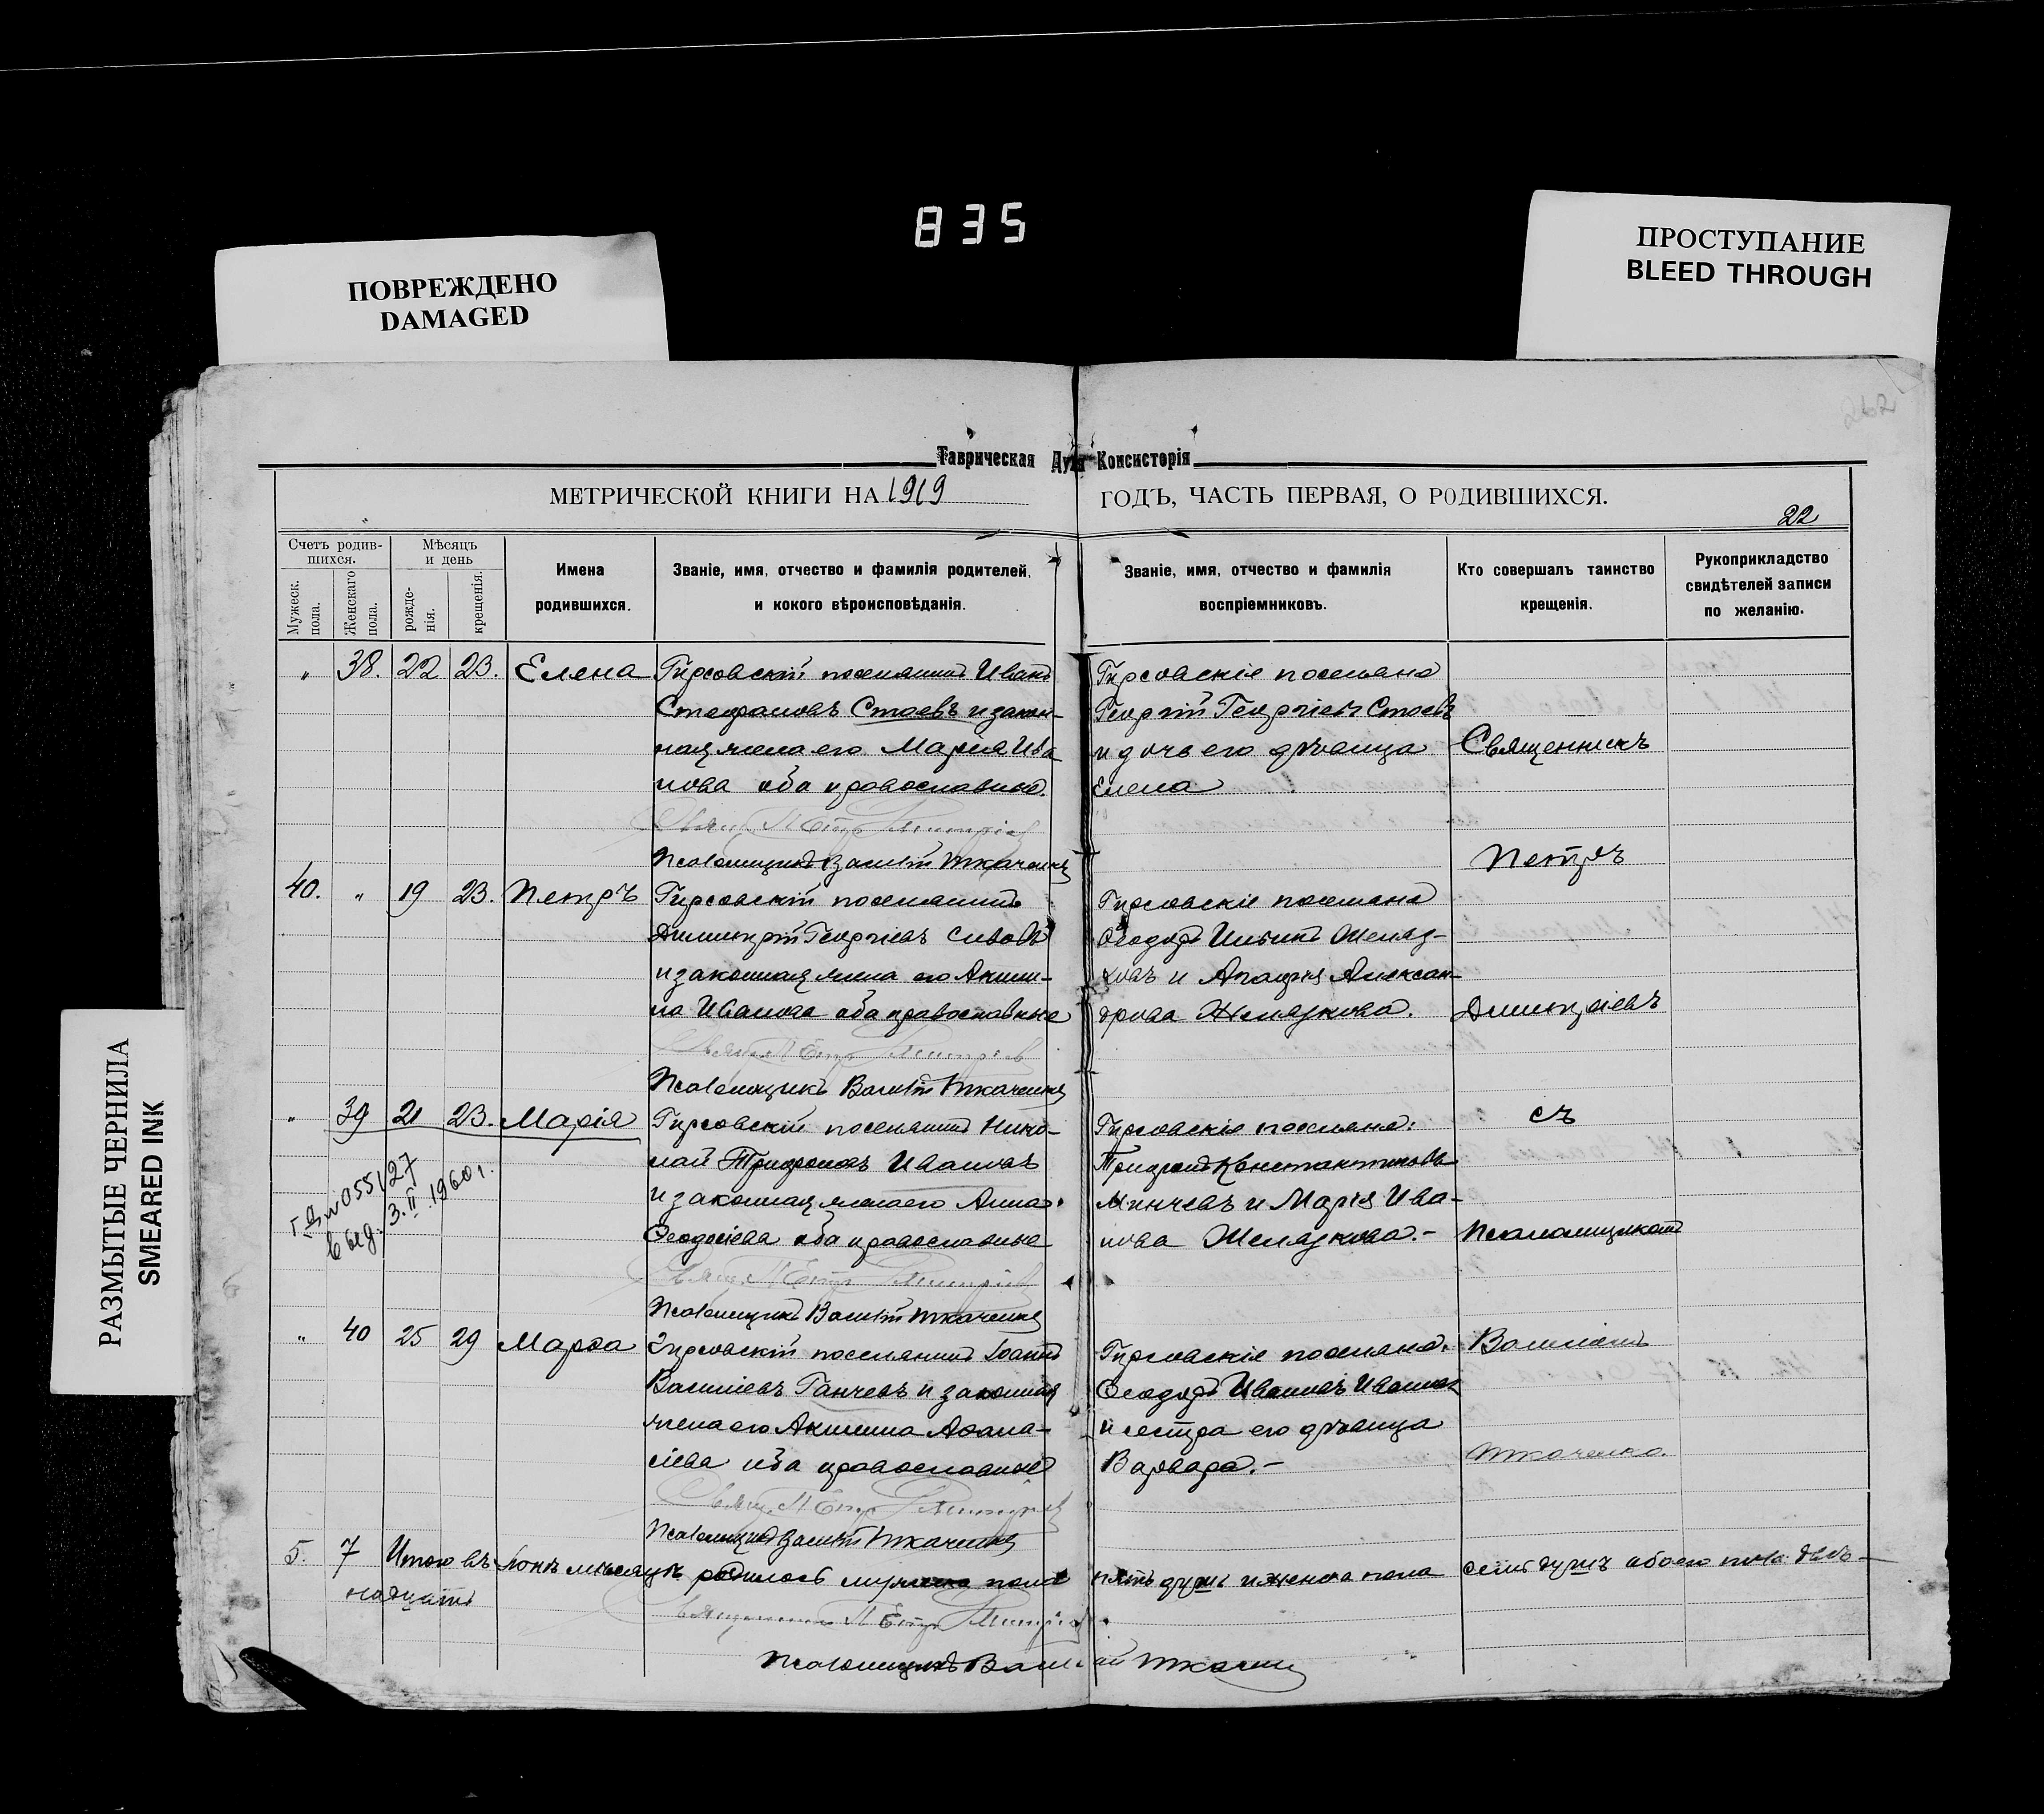 835
ПОВРЕЖДЕНО
DAMAGED
ПРОСТУПАНИЕ
BLEED THROUGH
РАЗМЫТЫЕ ЧЕРНИЛА
SMEARED INK
262
Таврическая Дух Консисторія
МЕТРИЧЕСКОЙ КНИГИ НА 1919 ГОДЪ, ЧАСТЬ ПЕРВАЯ, О РОДИВШИХСЯ.
22
Счетъ родив-
шихся.
Мужеск.
пола.
Женскаго
пола.
Мѣсяцъ
и день
рожде-
нія.
крещенія.
Имена
родившихся.
Званіе, имя, отчество и фамилія родителей,
и кокого вѣроисповѣданія.
Званіе, имя, отчество и фамилія
воспріемниковъ.
Кто совершалъ таинство
крещенія.
Рукоприкладство
свидѣтелей записи
по желанію.
" 38. 22 23. Елена
Гирсовскій поселянинъ Иванъ
Стефановъ Стоевъ и закон-
ная жена его Марія Ива
нова оба православные.
Свящ. Петръ Димитріев
Псаломщикъ Василій Ткаченко
Гирсовскіе поселяне
Георгій Георгіевъ Стоевъ
и дочь его дѣвица
Елена
40. " 19 23. Петръ
Гирсовскій поселянинъ
Димитрій Георгіевъ Сивовъ
и законная жена его Акили-
на Иванова оба православные
Свящ. Петръ Димитріев
Псаломщикъ Василій Ткаченко
Гирсовскіе поселяне
Ѳеодоръ Ильинъ Желяз-
ковъ и Агафія Алексан-
дрова Желязкова.
" 39 21 23. Марія
Г.Я. № 055127
выд. 3.II.1960 г.
Гирсовскій поселянинъ Нико-
лай Трифоновъ Ивановъ
и законная жена его Анна
Ѳеодосіева оба православные
Свящ. Петръ Димитріев
Псаломщикъ Василій Ткаченко
Гирсовскіе поселяне:
Трифонъ Константиновъ
Минчевъ и Марія Ива-
нова Желязкова.-
" 40 25 29 Марѳа
Гирсовскій поселянинъ Іоаннъ
Василіевъ Ганчевъ и законная
жена его Акилина Аѳана-
сіева оба православные
Свящ. Петръ Димитріев
Псаломщикъ Василій Ткаченко
Гирсовскіе поселяне.
Ѳеодоръ Ивановъ Ивановъ
и сестра его дѣвица
Варвара.-
Священникъ
Петръ
Димитріевъ
съ
Псаломщикомъ
Василіемъ
Ткаченко.
5. 7 Итого въ Іюнѣ мѣсяцѣ родилось мужеска пола пять душъ и женска пола семь душъ обоего пола двѣ-
надцать
Священникъ Петръ Димитріев
Псаломщикъ Василій Ткаченко